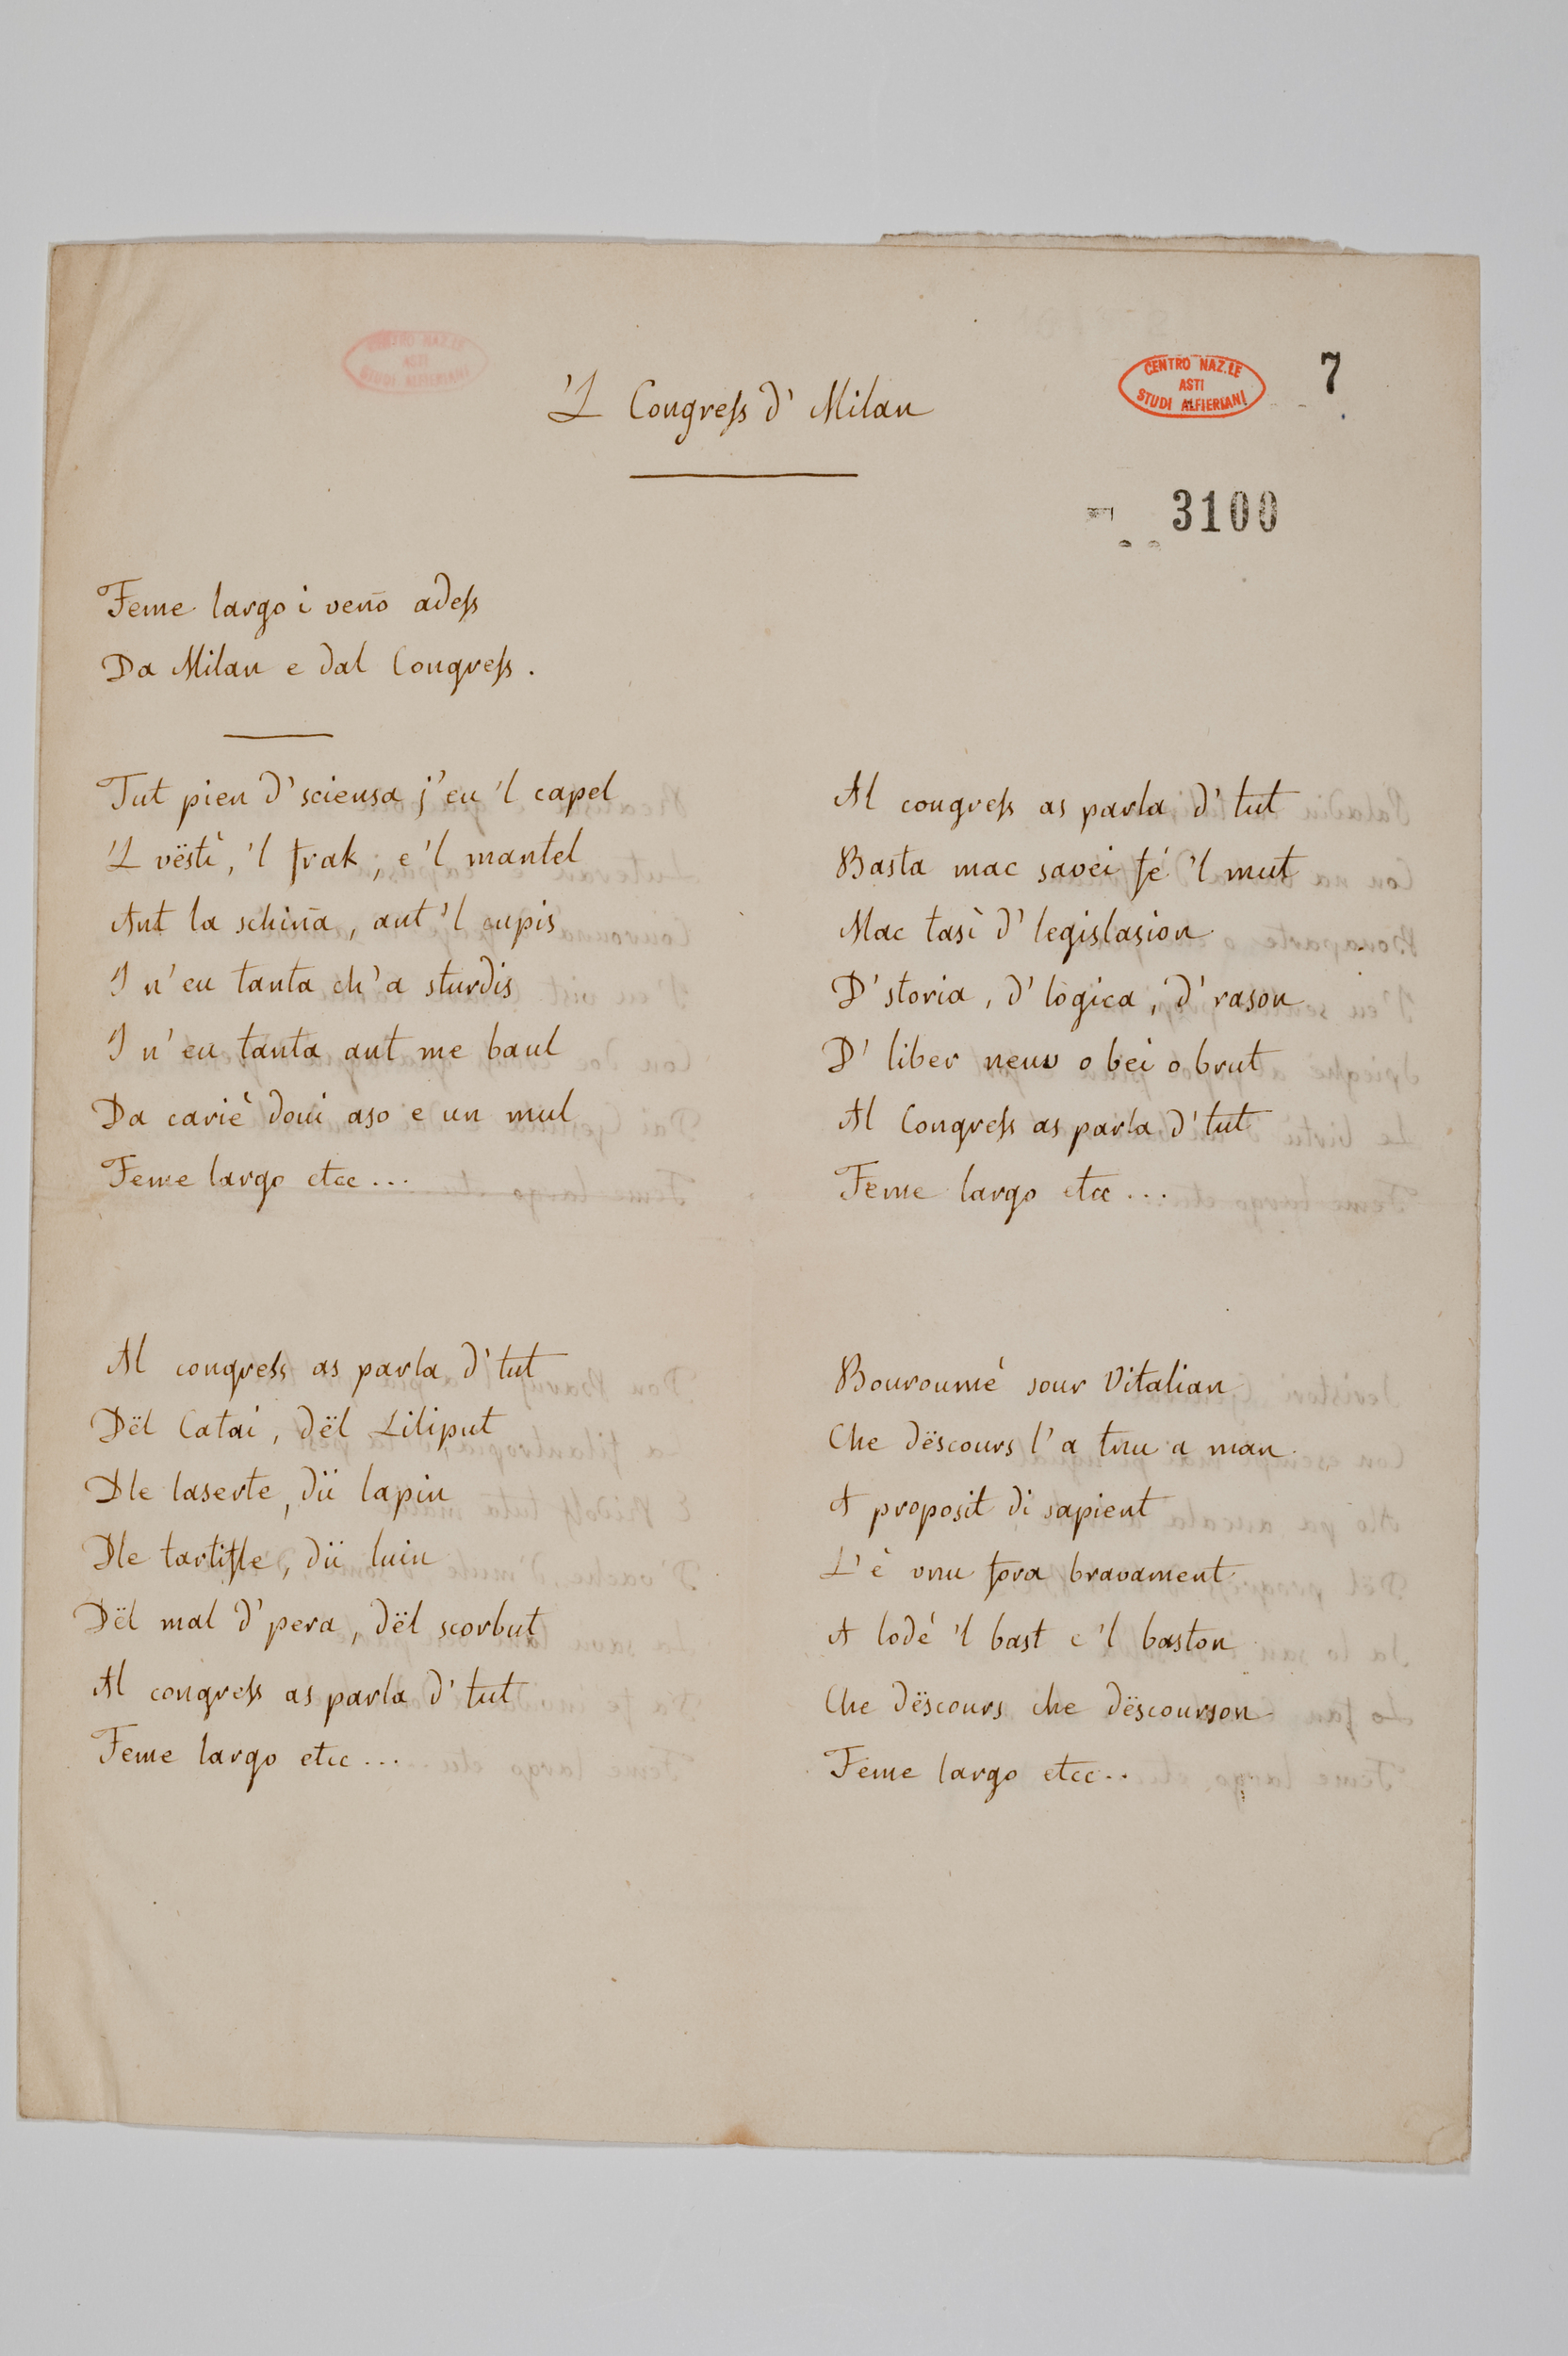 CENTRO NAZ.LE
ASTI
STUDI ALFIERIANI
'L Congress d' Milan
CENTRO NAZ.LE
ASTI
STUDI ALFIERIANI
7
3100
Feme largo i veño adess
Da Milan e dal Congress.
Tut pien d' sciensa j'eu 'l capel
'L vëstì, 'l frak, e 'l mantel
Ant la schiña, ant 'l cupis
I n'eu tanta ch'a sturdis
I n'eu tanta ant me baul
Da cariè doui aso e un mul
Feme largo etcc...
Al congress as parla d' tut
Dël Catai, dël Liliput
Dle laserte, dii lapin
Dle tartifle, dii luin
Dël mal d' pera, dël scorbut
Al congress as parla d' tut
Feme largo etcc...
Al congress as parla d' tut
Basta mac savei fé 'l mut
Mac tasì d' legislasion
D' storia, d' lògica, d' rason
D' liber neuv o bei o brut
Al Congress as parla d' tut
Feme largo etcc...
Bouroumé sour Vitalian
Che dëscours l'a tnu a man
A proposit di sapient
L'è vnu fora bravament
A lodé 'l bast e 'l baston
Che dëscours che dëscourson
Feme largo etcc..